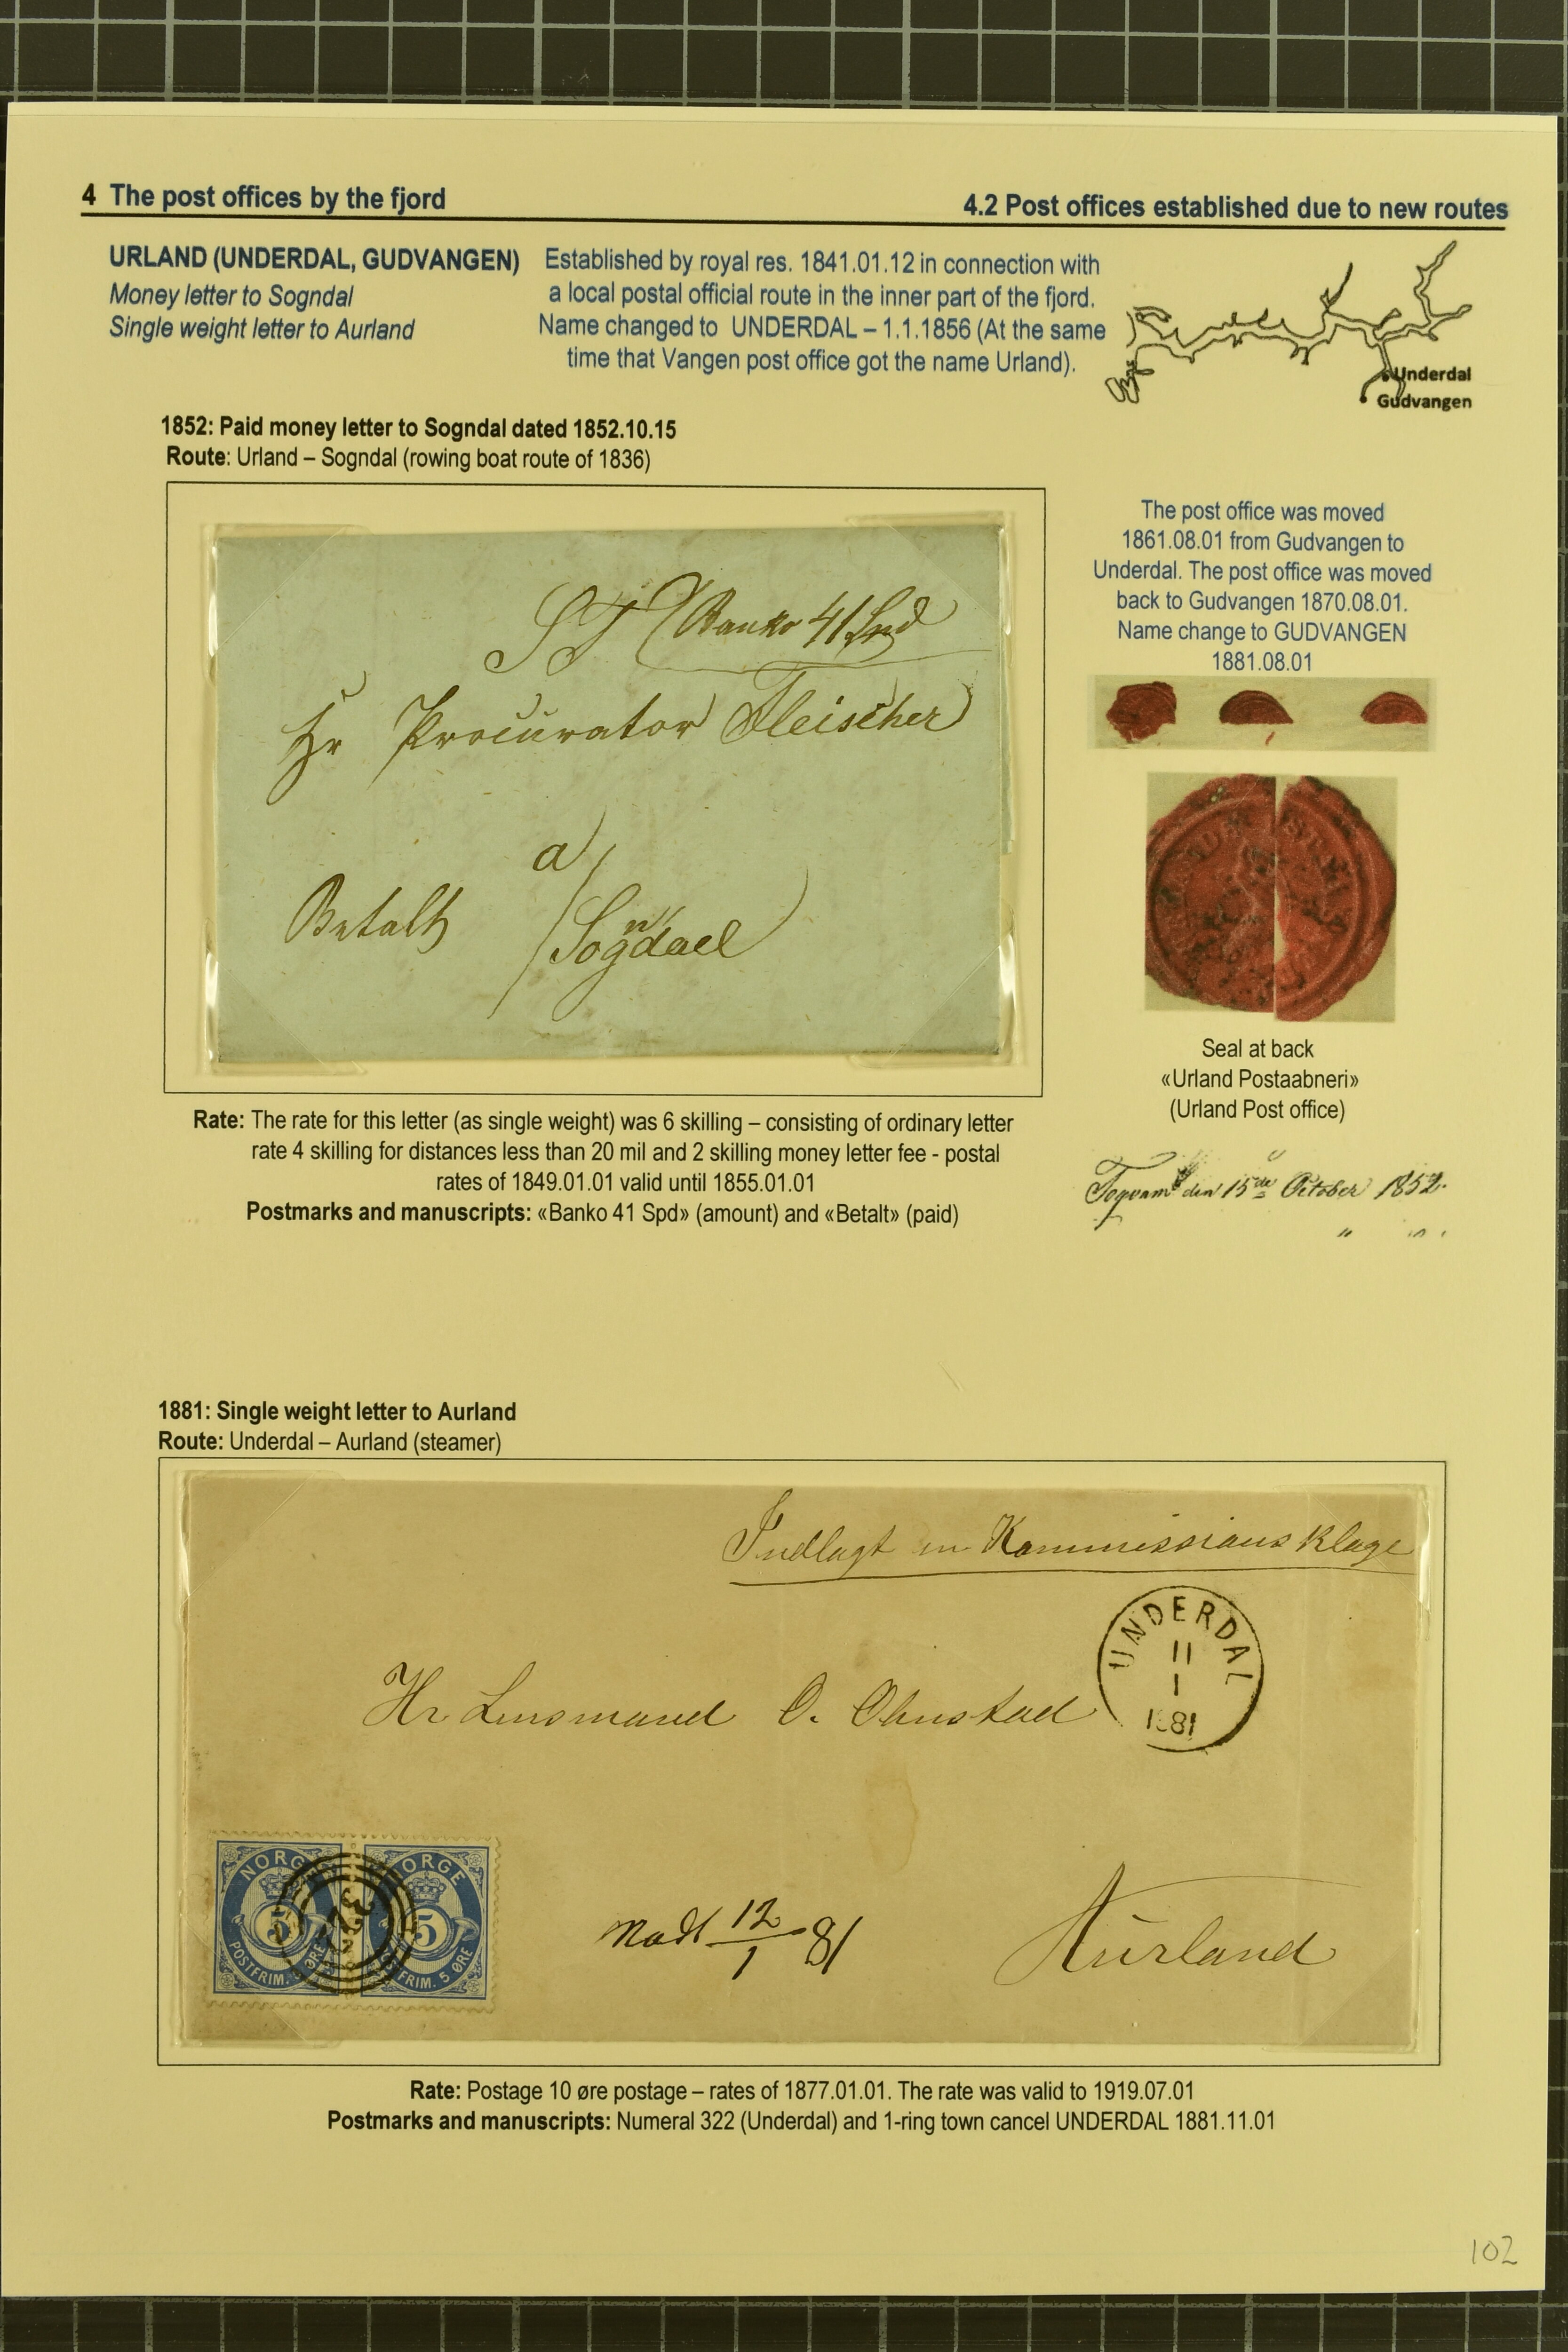 4 The post offices by the fjord
4.2 Post offices established due to new routes
URLAND (UNDERDAL, GUDVANGEN)
Money letter to Sogndal
Single weight letter to Aurland
Established by royal res. 1841.01.12 in connection with
a local postal official route in the inner part of the fjord.
Name changed to UNDERDAL – 1.1.1856 (At the same
time that Vangen post office got the name Urland).
Underdal
Gudvangen
1852: Paid money letter to Sogndal dated 1852.10.15
Route: Urland – Sogndal (rowing boat route of 1836)
ST Banko 41 Spd
Hr Procurator Fleischer
a/
Betalt
Sogndael
The post office was moved
1861.08.01 from Gudvangen to
Underdal. The post office was moved
back to Gudvangen 1870.08.01.
Name change to GUDVANGEN
1881.08.01
Seal at back
«Urland Postaabneri»
(Urland Post office)
den 15de October 1852.
Rate: The rate for this letter (as single weight) was 6 skilling – consisting of ordinary letter
rate 4 skilling for distances less than 20 mil and 2 skilling money letter fee - postal
rates of 1849.01.01 valid until 1855.01.01
Postmarks and manuscripts: «Banko 41 Spd» (amount) and «Betalt» (paid)
1881: Single weight letter to Aurland
Route: Underdal – Aurland (steamer)
Indlagt en Kommissions Klage
UNDERDAL
11
1
1881
Hr Lensmand O. Ohnstad
NORGE
5
POSTFRIM. 5 ØRE
NORGE
5
POSTFRIM. 5 ØRE
322
Modt 12/1 81
Aurland
Rate: Postage 10 øre postage – rates of 1877.01.01. The rate was valid to 1919.07.01
Postmarks and manuscripts: Numeral 322 (Underdal) and 1-ring town cancel UNDERDAL 1881.11.01
102